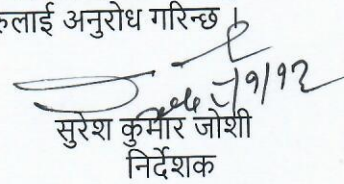 रुलाई अनुरोध गरिन्छ ।
७/१/१२
सुरेश कुमार जोशी
निर्देशक